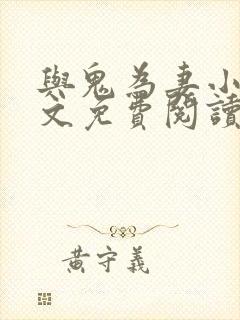 與鬼為妻小
文免費閱讀
黃守義